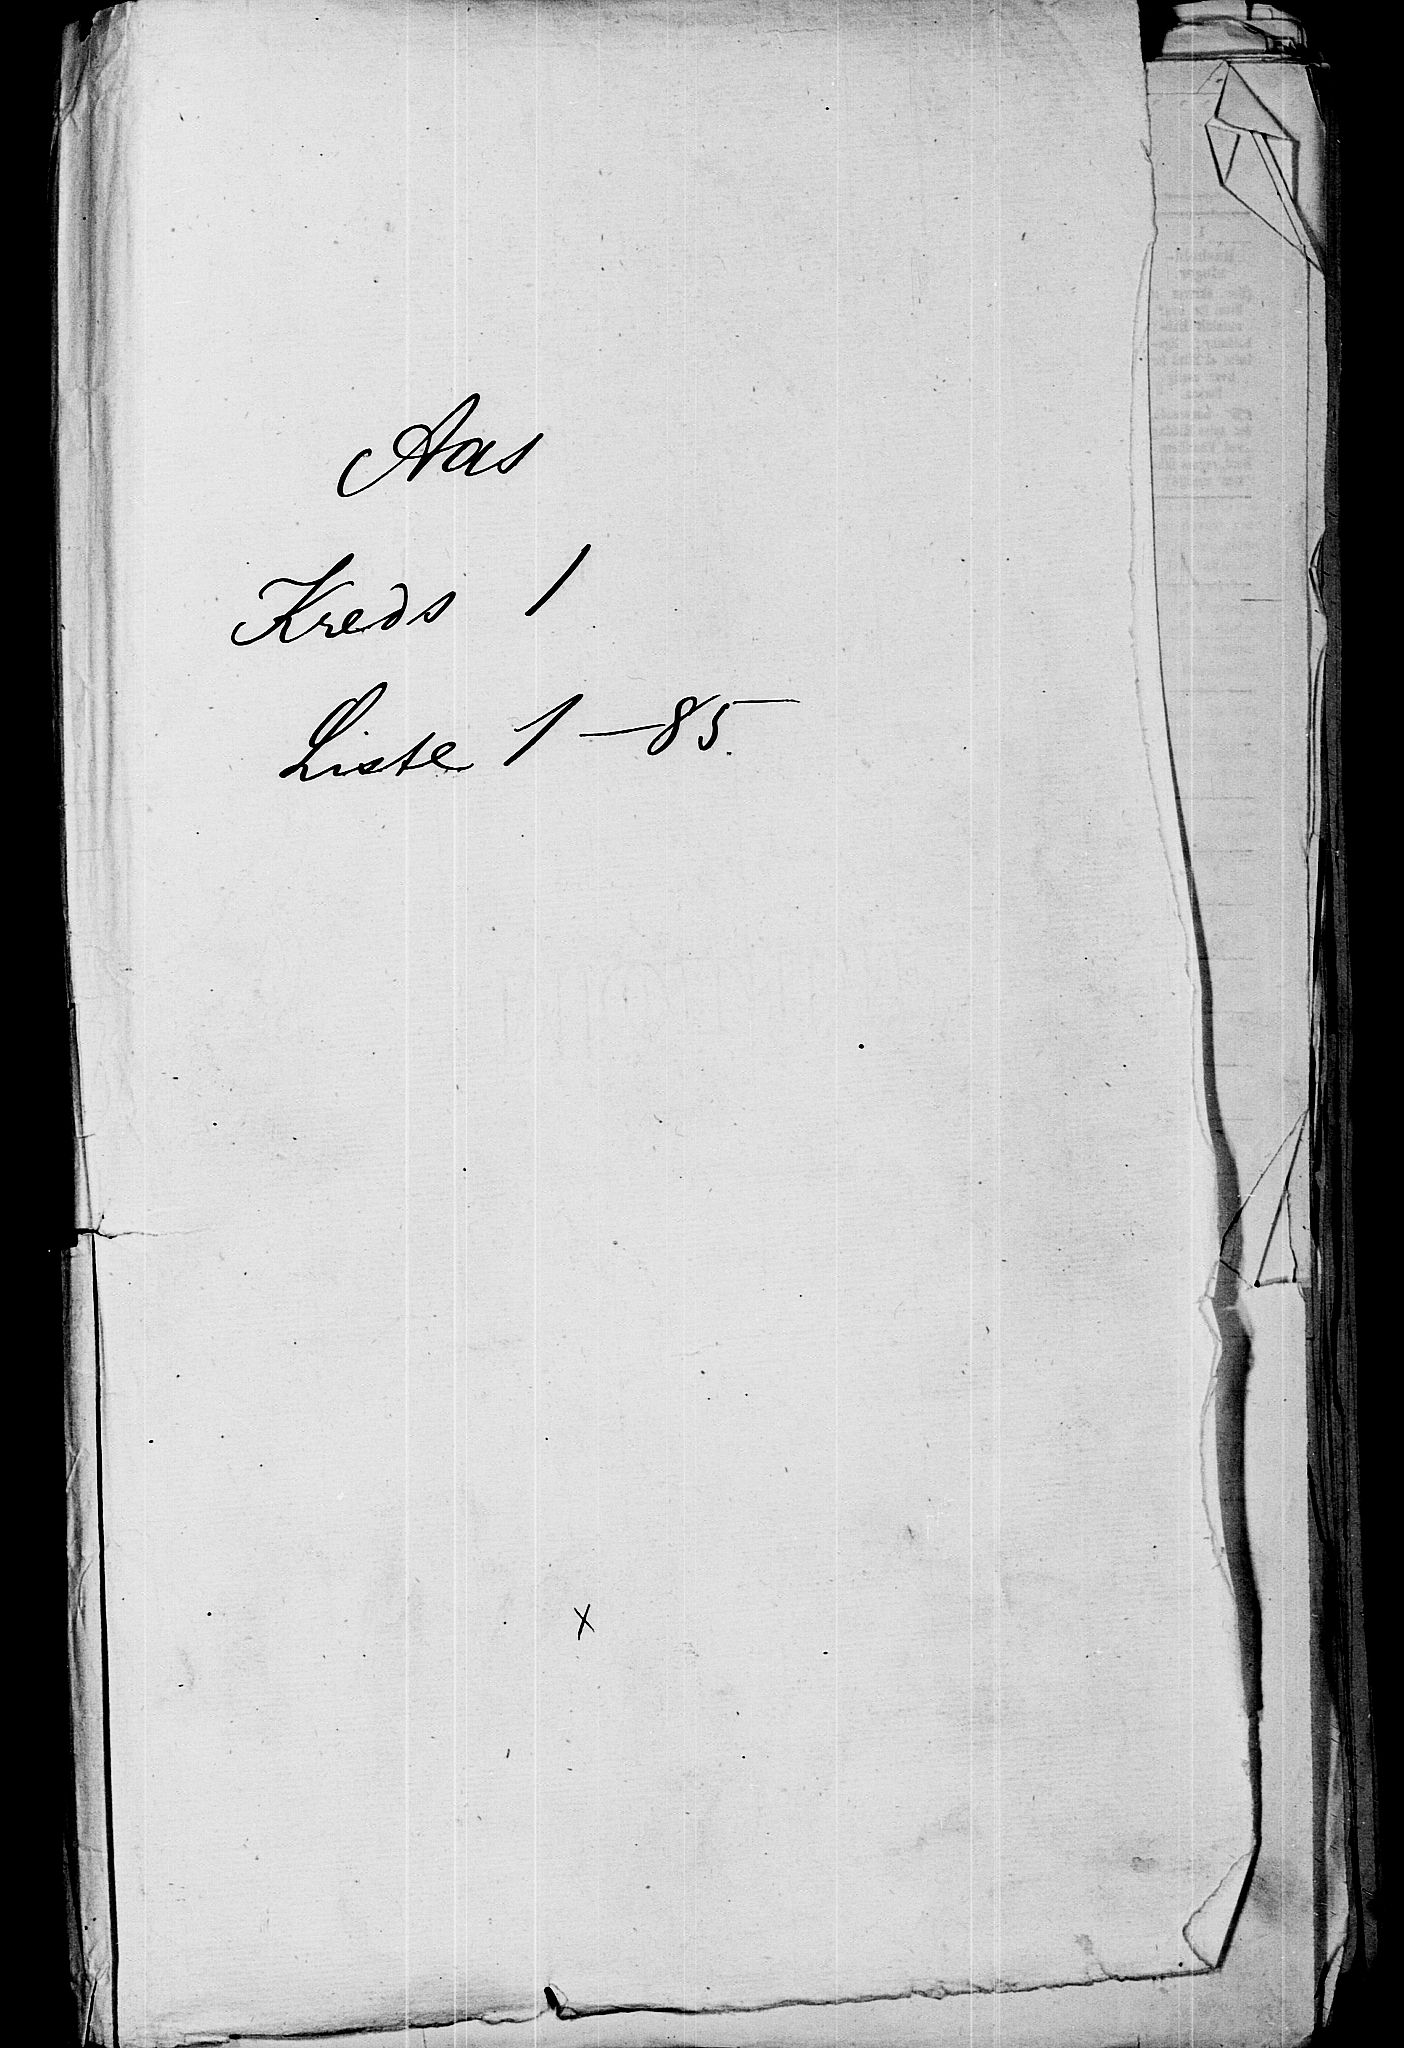 Aas
Kreds 1
Liste 1-85.
x